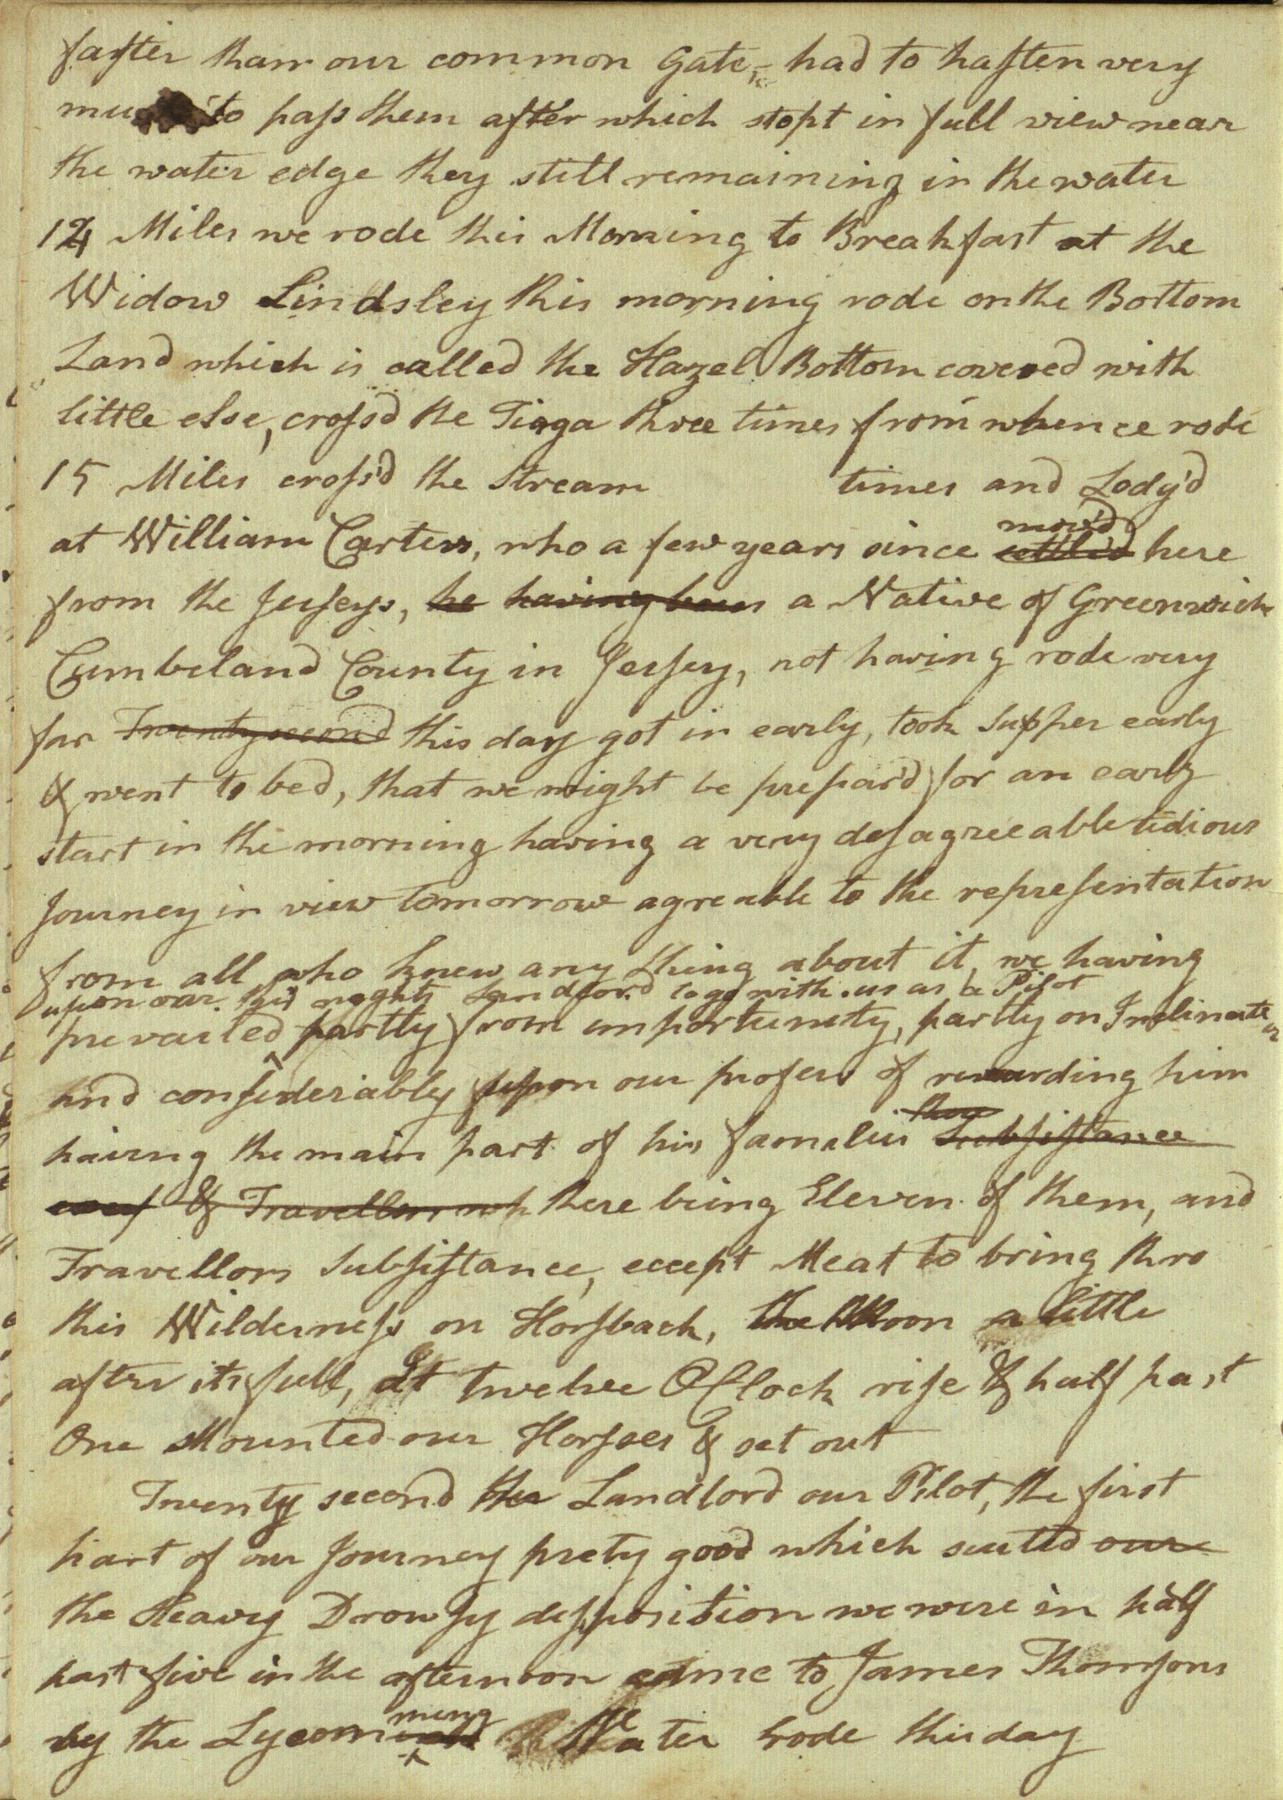 faster than our common Gate, had to hasten very
much to pass them after which stopt in full view near
the water edge they still remaining in the water
14 Miles we rode this Morning to Breakfast at the
Widow Lindsley this morning rode on the Bottom
Land which is called the Hazel Bottom covered with
little else, cross'd the Tioga three times from whence rode
15 Miles cross'd the Stream times and Lody'd
at William Carters, who a few years since settled mov'd here
from the Jerseys, he having been a Native of Greenwich
Cumbeland County in Jersey, not having rode very
far Twenty second this day got in early, took Supper early
& went to bed, that we might be prepar'd for an early
start in the morning having a very desagreeable tedious
Journey in view tomorrow agreable to the representation
from all who knew any thing about it, we having
upon our this nights Landlord to go with us as a Pilot
prevailed partly from importunity, partly on Inclination
and considerably upon our profers of rewarding him
haivng the main part of his familie thos Subsistance
& Travellers wh there being Eleven of them, and
Travellors Subsistance, except Meat to bring thro
this Wilderness on Horsback, the Moon a little
after its full, At twelve OClock rise & half past
One Mounted our Horses & set out
Twenty second the Landlord our Pilot, the first
part of our Journey prety good which suited our
the Heavy Drowsy desposition we were in half
past five in the afternoon came to James Thomsons
by the Lycomming Water rode this day